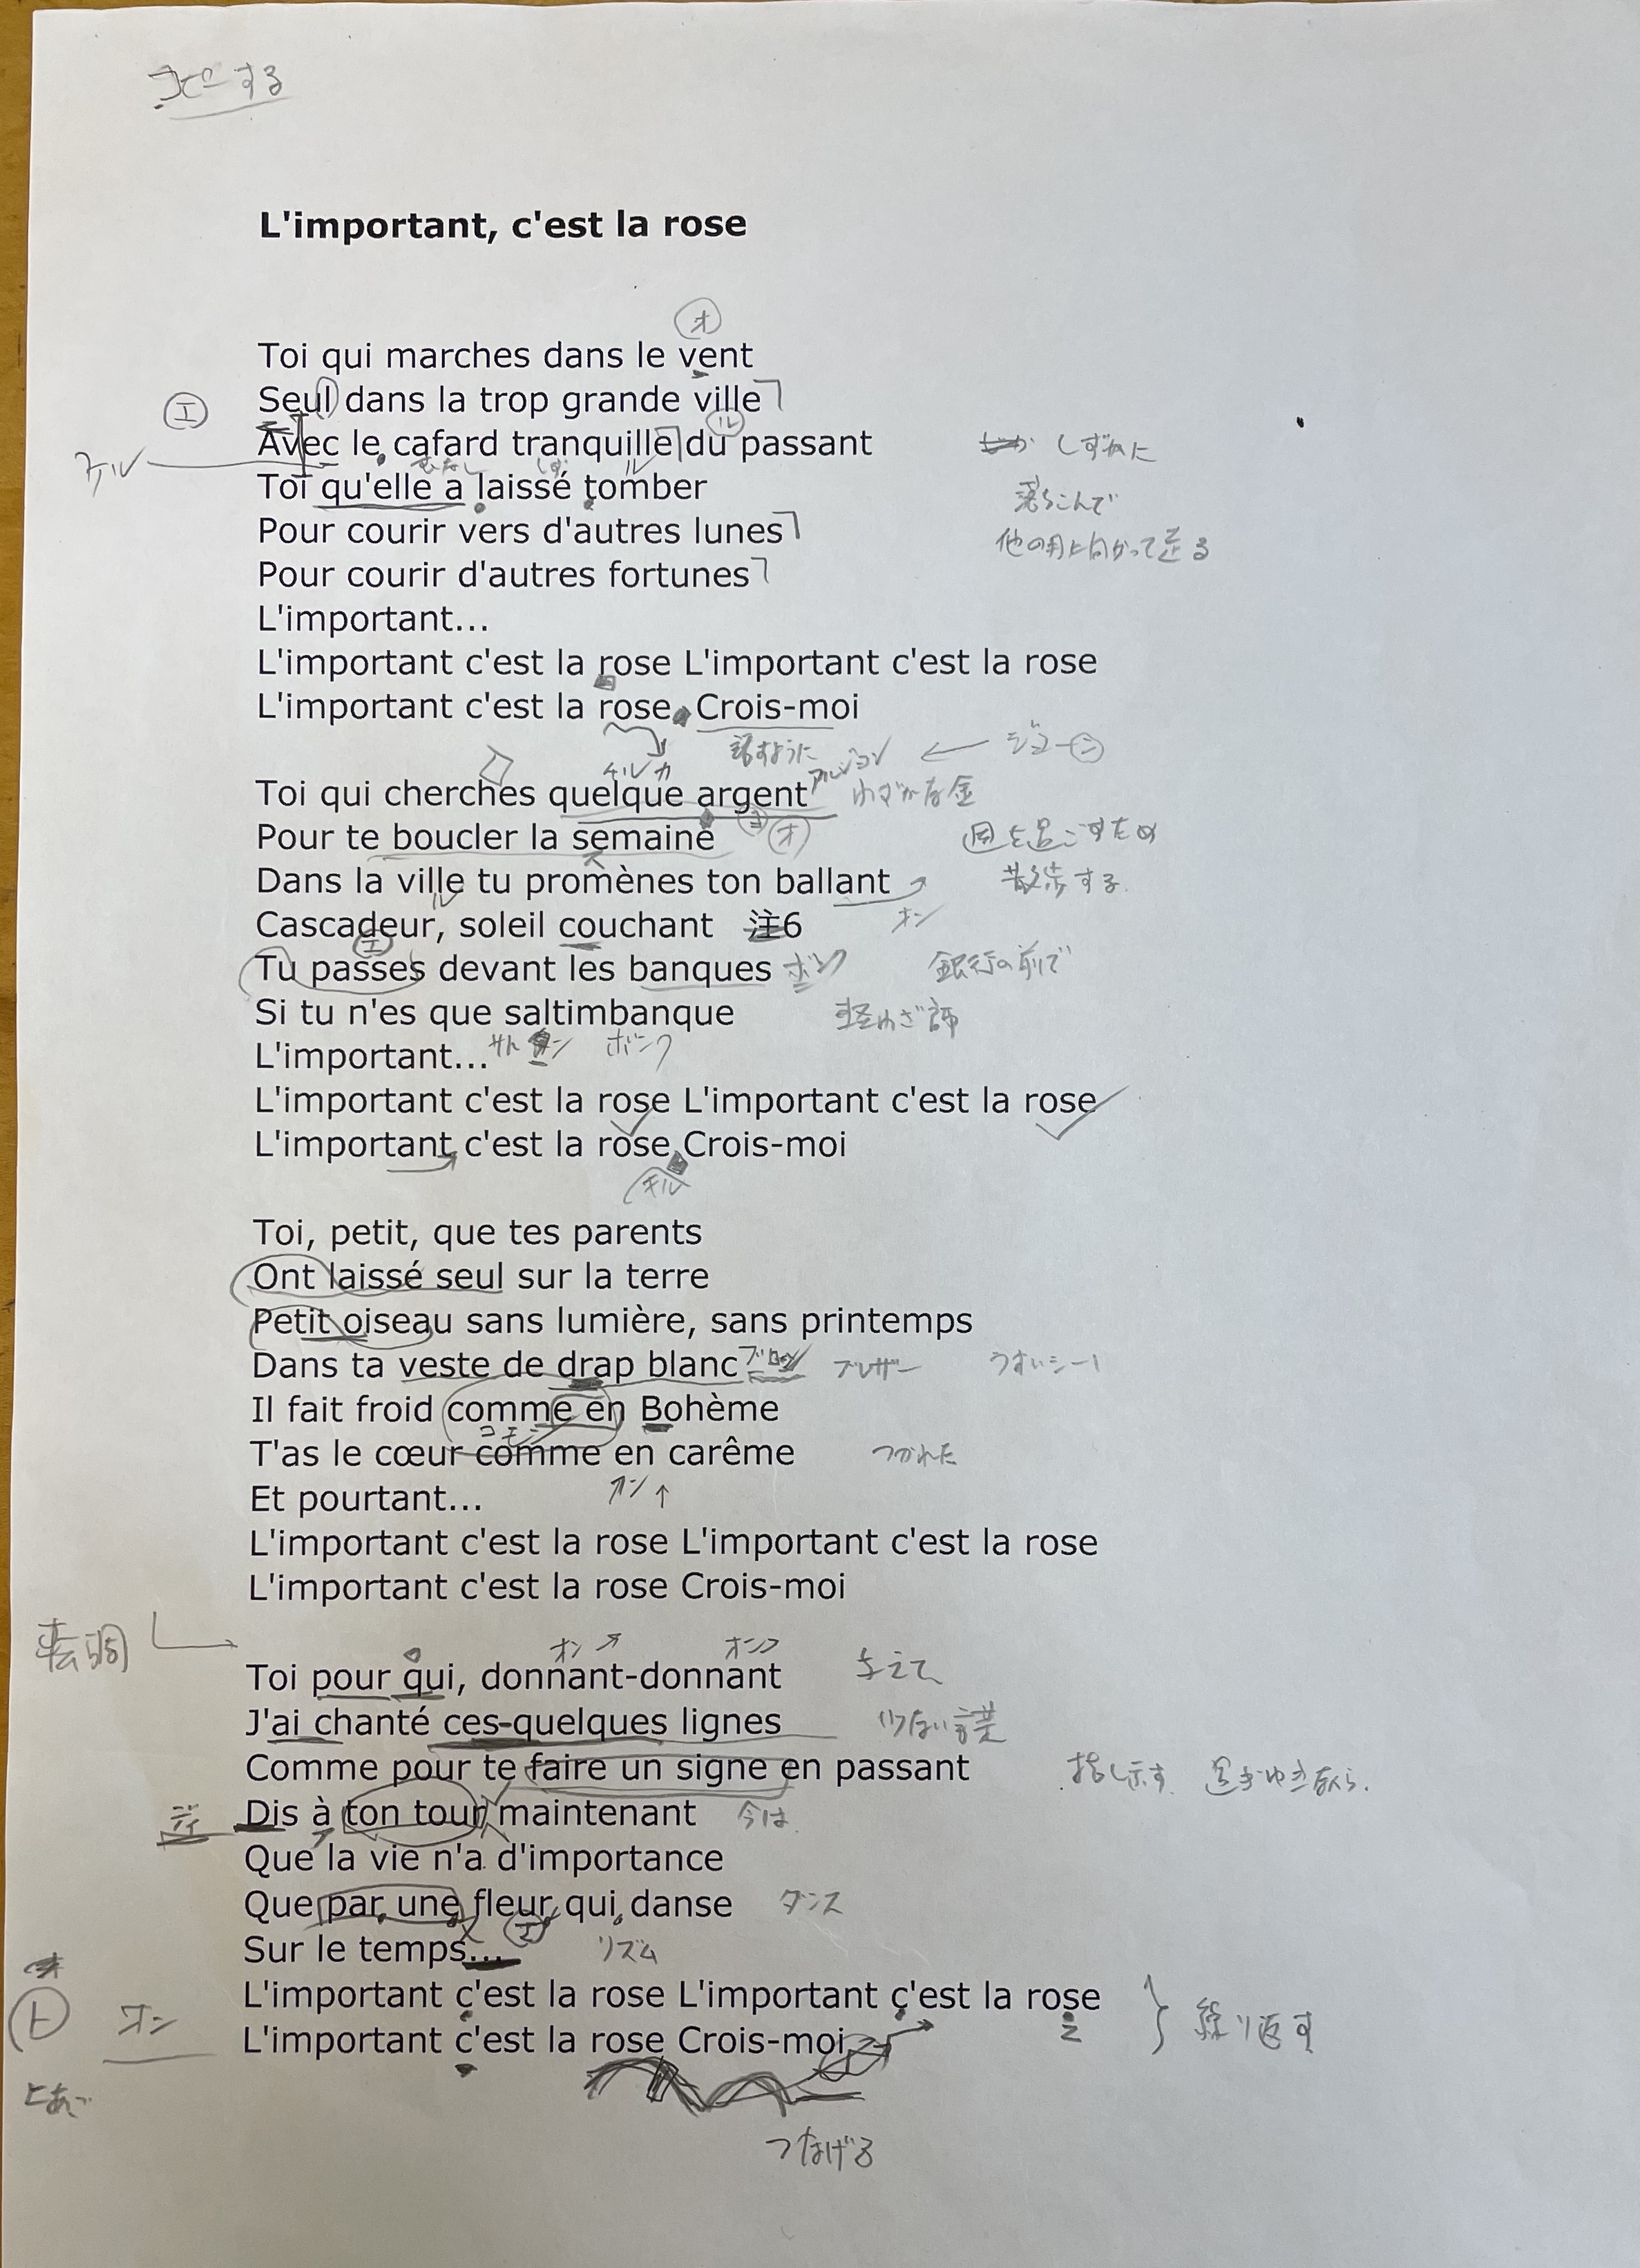 コピーする
L'important, c'est la rose
オ
Toi qui marches dans le vent
Seul dans la trop grande ville
エ
Avec le cafard tranquille du passant しずかに
ル
Toi qu'elle a laissé tomber 落ちこんで
Pour courir vers d'autres lunes 他の月に向かって走る
Pour courir d'autres fortunes
L'important...
L'important c'est la rose L'important c'est la rose
L'important c'est la rose Crois-moi
話すように
ケルカ アルジョン
Toi qui cherches quelque argent わずかな金
Pour te boucler la semaine オ 週を過ごすため
Dans la ville tu promènes ton ballant 散歩する
ル
Cascadeur, soleil couchant 注6 オン
エ
Tu passes devant les banques ボン 銀行の前で
Si tu n'es que saltimbanque 軽わざ師
L'important... ボンク
L'important c'est la rose L'important c'est la rose
L'important c'est la rose Crois-moi
Toi, petit, que tes parents
Ont laissé seul sur la terre
Petit oiseau sans lumière, sans printemps
Dans ta veste de drap blanc ブロン ブレザー うすいシート
Il fait froid comme en Bohème
T'as le cœur comme en carême つかれた
Et pourtant... オン ↑
L'important c'est la rose L'important c'est la rose
L'important c'est la rose Crois-moi
転調
オン オン
Toi pour qui, donnant-donnant 与えて
J'ai chanté ces quelques lignes 少ない言葉
Comme pour te faire un signe en passant 指し示す 過ぎゆきながら.
ディ Dis à ton tour maintenant 今は
Que la vie n'a d'importance
Que par une fleur qui danse ダンス
エ
Sur le temps... リズム
L'important c'est la rose L'important c'est la rose
繰り返す
オン L'important c'est la rose Crois-moi
つなげる